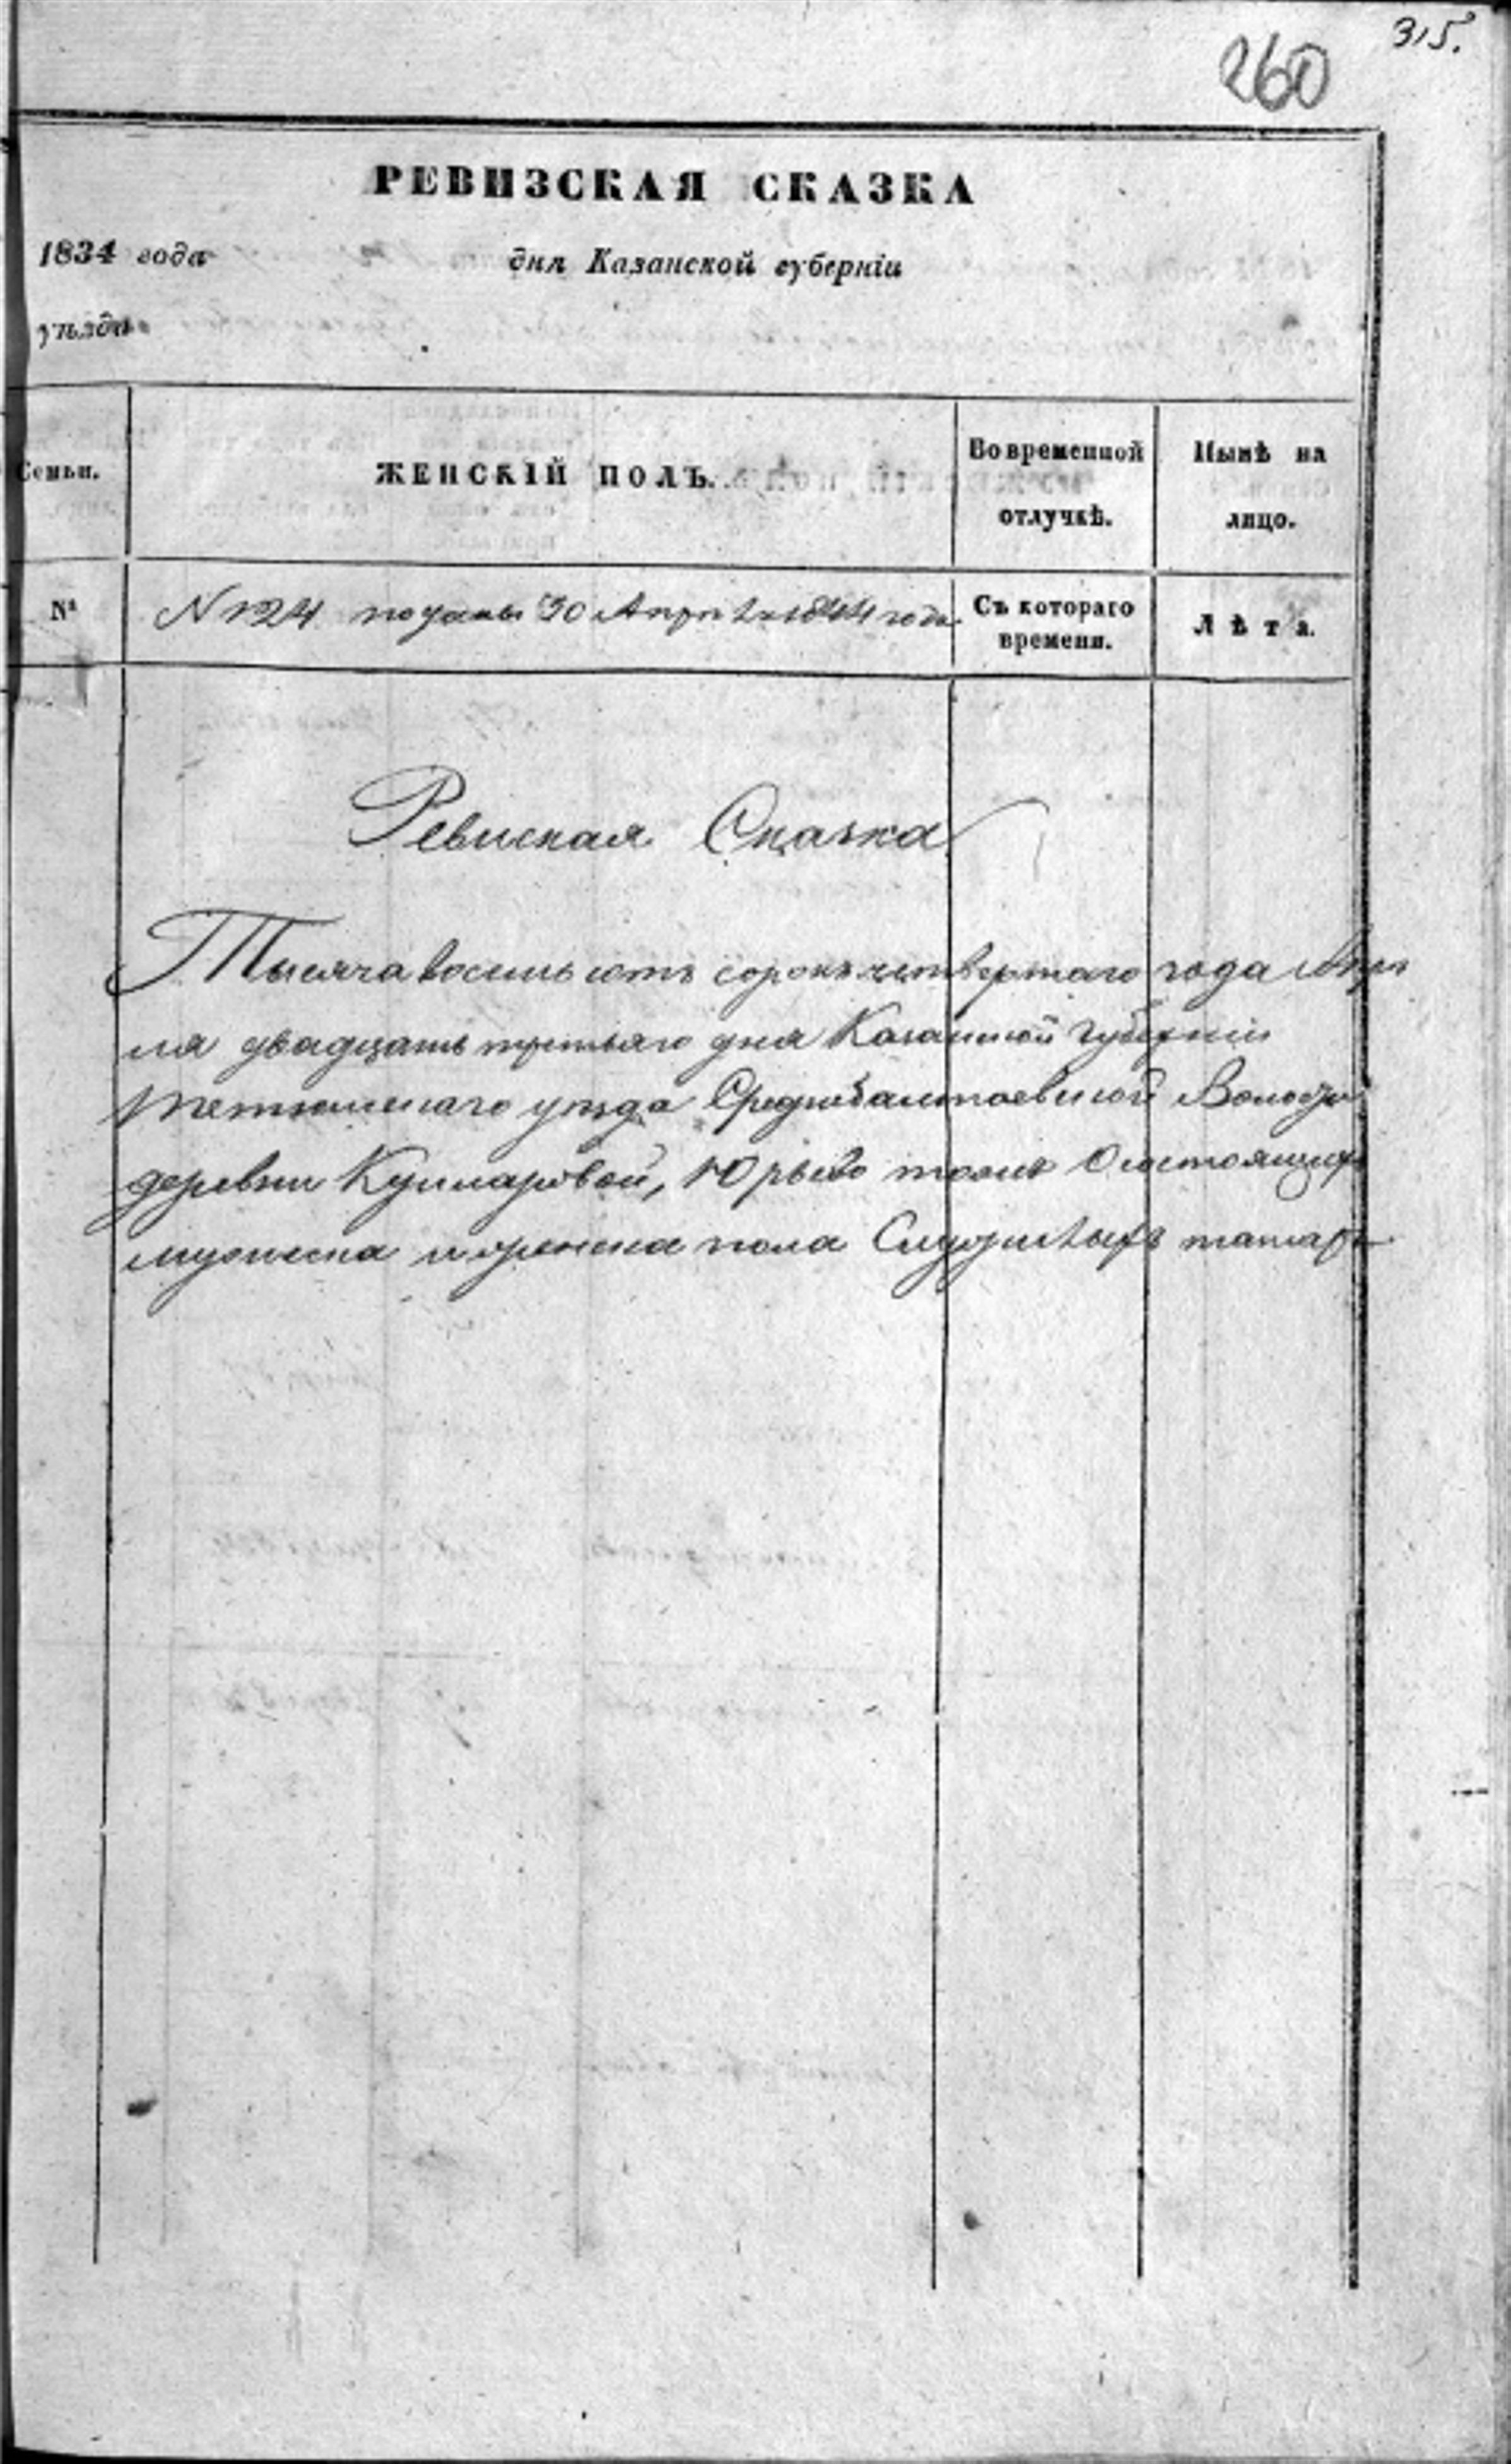 315.
260
РЕВИЗСКАЯ СКАЗКА
1834 года дня Казанской губернiи
уѣзда
Семьи. ЖЕНСКIЙ ПОЛЪ. Во временной отлучкѣ. Нынѣ на лицо.
№ N 124 поданы 30 Апреля 1844 года. Съ котораго времени. Лѣта.
Ревиская Сказка
Тысяча восемь сотъ сорокъ четвертаго года Апре
ля двадцать третьяго дня Казанской губернiи
тетюшскаго уѣзда Среднебалтаевской Волости
деревни Кушларовой, тожъ О состоящихъ
мужеска и женска пола Служилыхъ татаръ